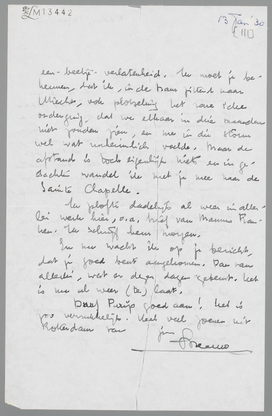 M13442
13 Jan '30
[III]
een beetje verlatenheid. Nu moet je be-
kennen, dat ik, in de tram zittend naar
Utrecht, ook plotseling het
dat we elkaar in drie maanden
niet zouden zien, en me in die storm
wel wat voelde. Maar de
afstand is toch eigenlijk niets en in ge-
dachten wandel ik met je mee naar de
Sainte Chapelle.
Nu plofte dadelijk al weer in aller-
lei werk hier, o.a. brief van Mannus Fran-
ken. Ik schrijf hem morgen.
En nu wacht ik op je bericht,
dat je goed bent aangekomen. Dan van
allerlei, wat er dezer dagen gebeurt. Het
is nu al weer (te) laat.
Daaf Parijs goed aan! Het is
zoo verrukkelijk. Heel veel zoenen uit
Rotterdam van
jou